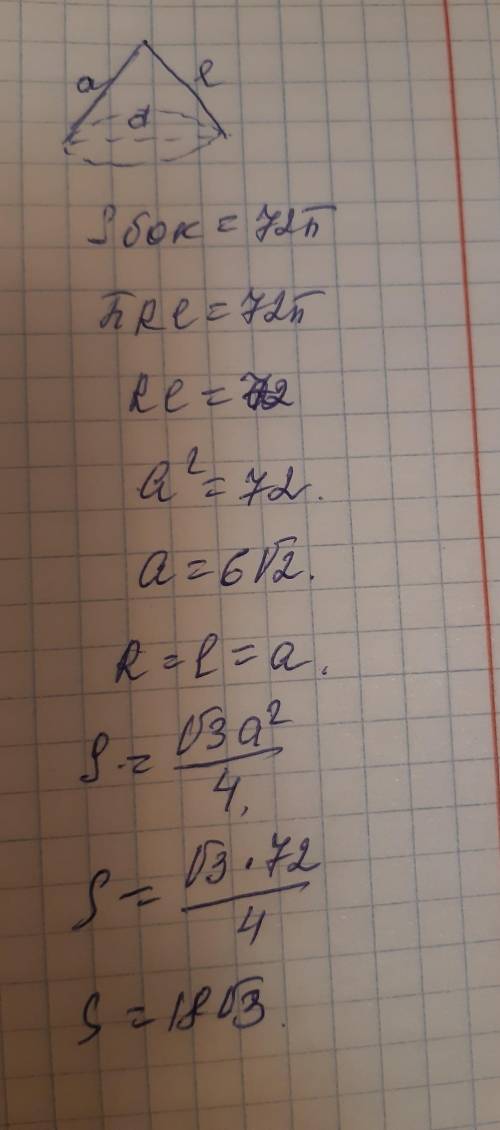 a l
d
Sбок = 72π
πRl = 72π
Rl = 72
a² = 72.
a = 6√2.
R = l = a.
S = √3a²/4.
S = √3·72/4
S = 18√3.